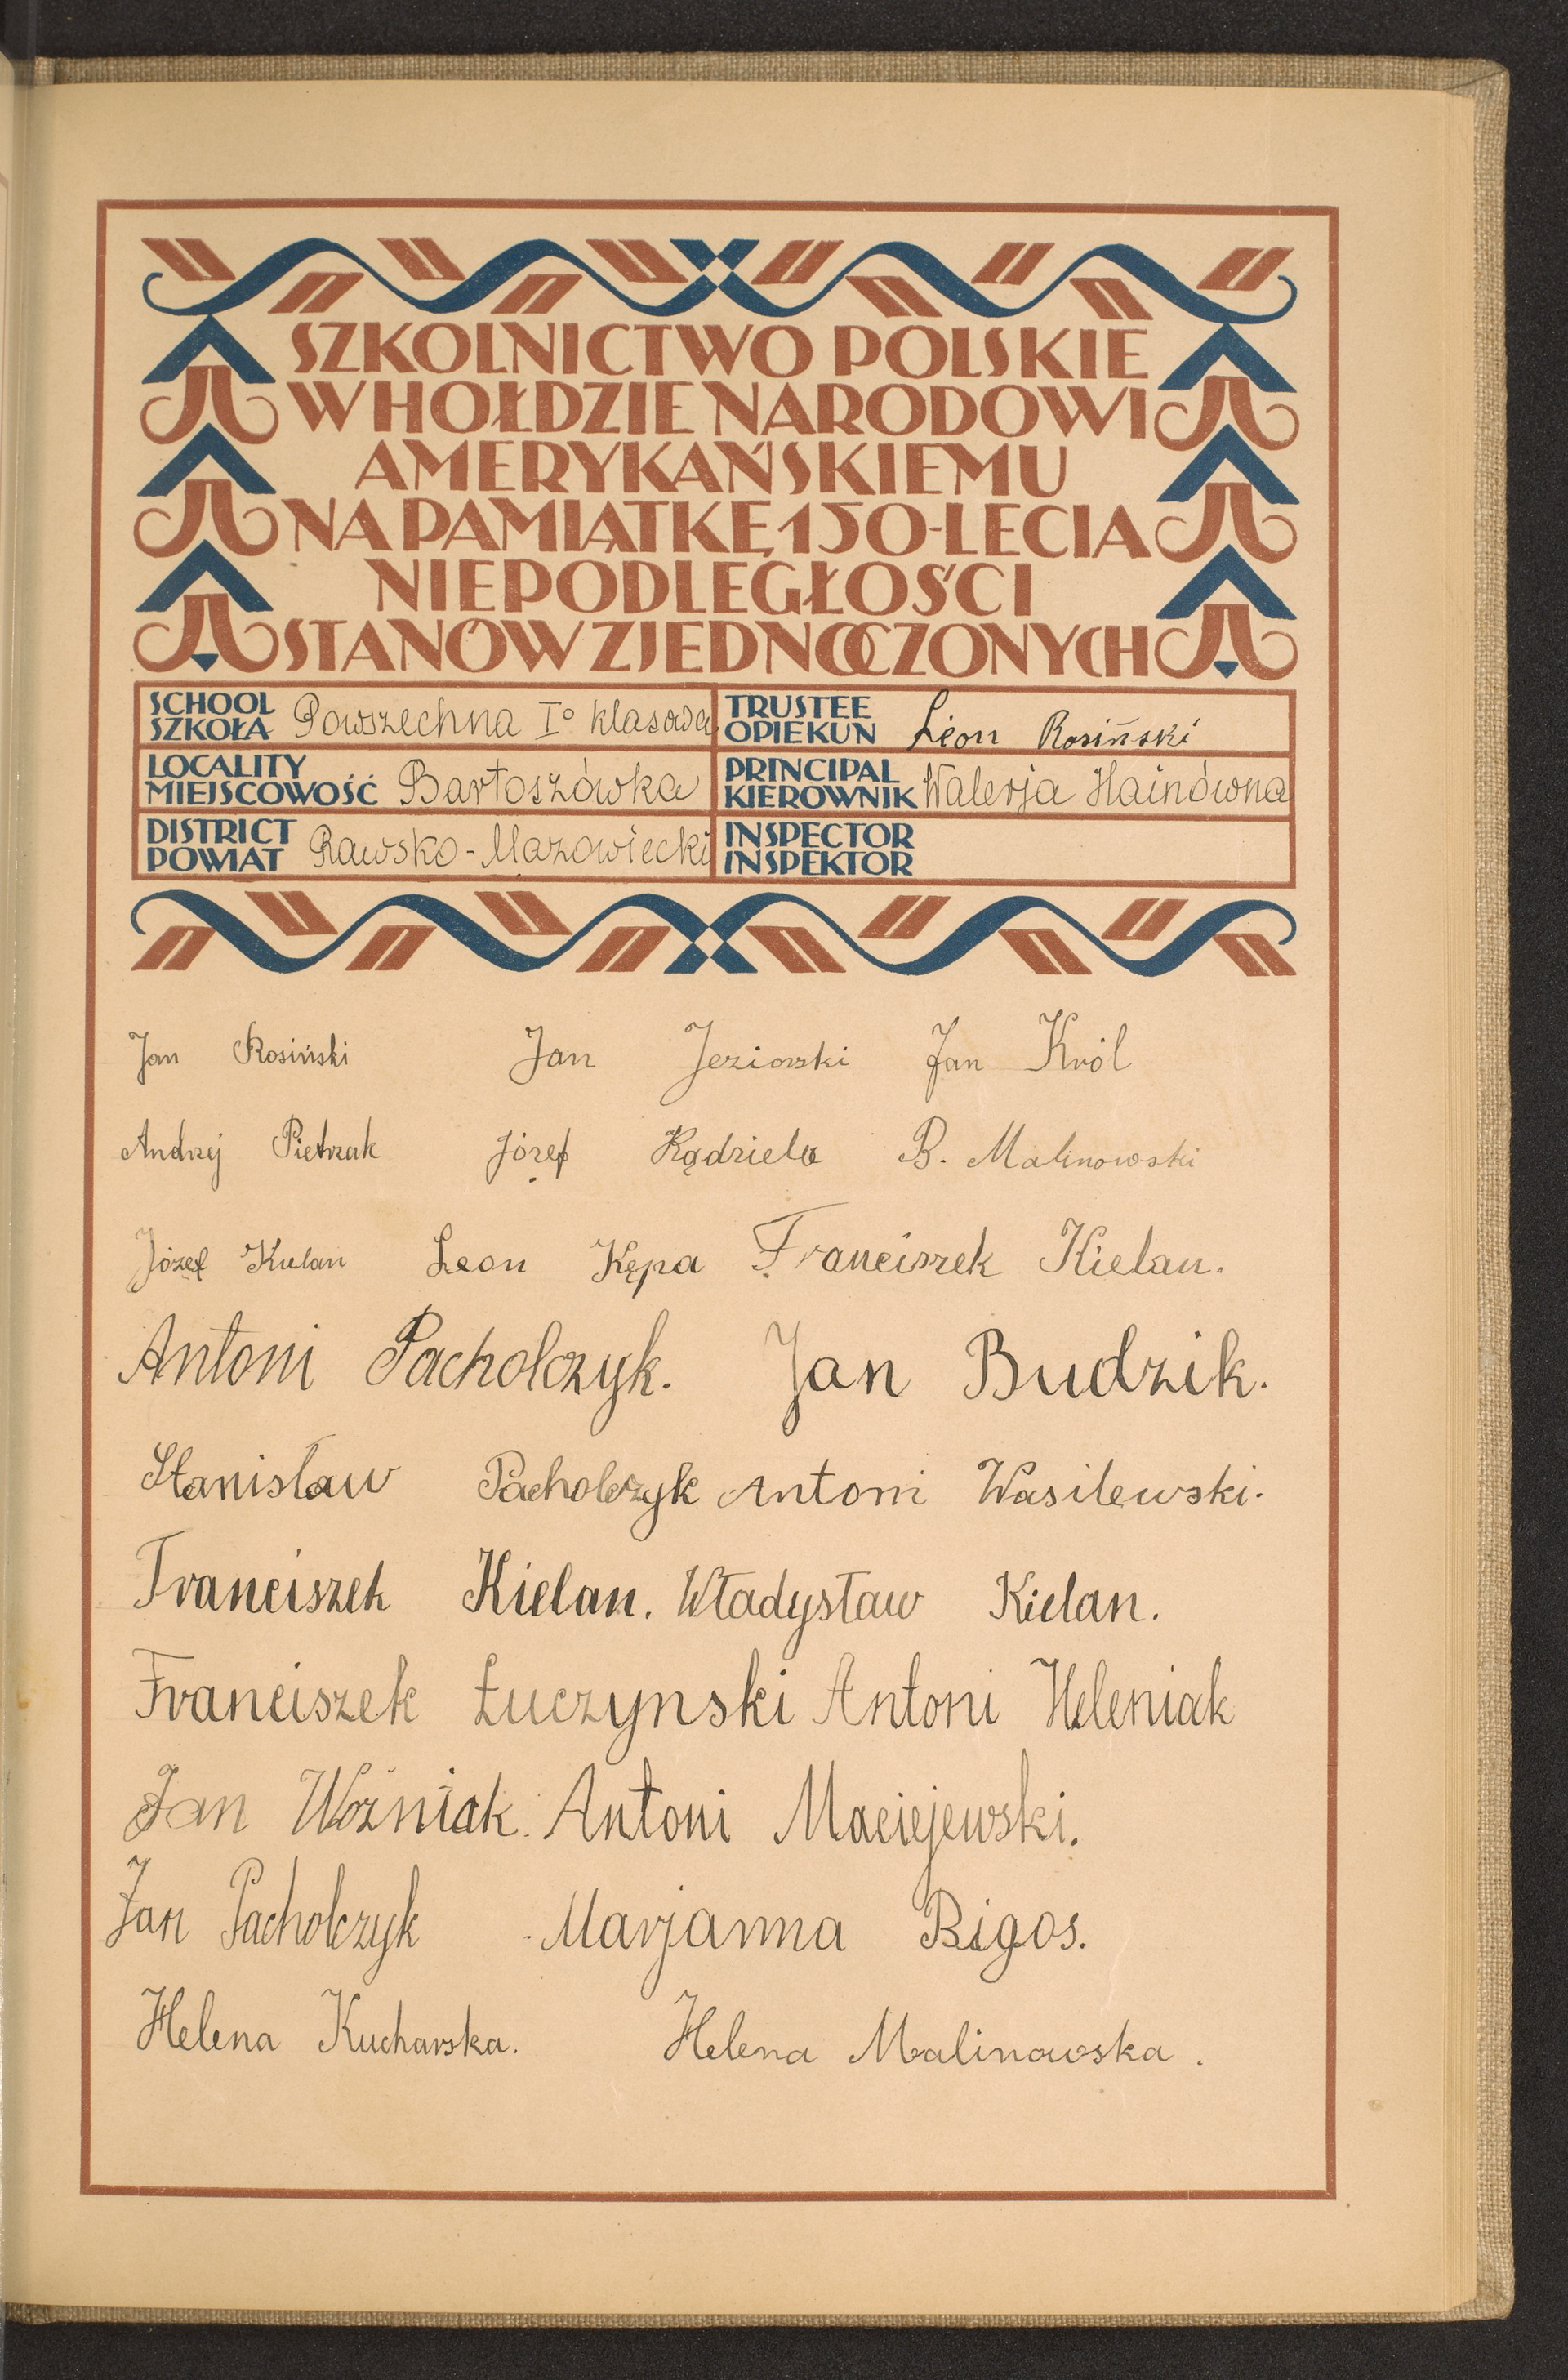 SZKOLNICTWO POLSKIE
W HOŁDZIE NARODOWI
AMERYKAŃSKIEMU
NA PAMIĄTKĘ 150-LECIA
NIEPODLEGŁOŚCI
STANÓW ZJEDNOCZONYCH
SCHOOL
SZKOŁA Powszechna I° klasowa
TRUSTEE
OPIEKUN Leon Rosiński
LOCALITY
MIEJSCOWOŚĆ Bartoszówka
PRINCIPAL
KIEROWNIK Walerja Hainówna
DISTRICT
POWIAT Rawsko-Mazowiecki
INSPECTOR
INSPEKTOR
Jan Rosiński Jan Jeziorski Jan Król
Andrzej Pietrzak Józef Kądziela B. Malinowski
Józef Kielan Leon Kępa Franciszek Kielan.
Antoni Pacholczyk. Jan Budzik.
Stanisław Pacholczyk Antoni Wasilewski.
Franciszek Kielan. Władysław Kielan.
Franciszek Łuczynski Antoni Heleniak
Jan Woźniak. Antoni Maciejewski.
Jan Pacholczyk Marjanna Bigos.
Helena Kucharska. Helena Malinowska.